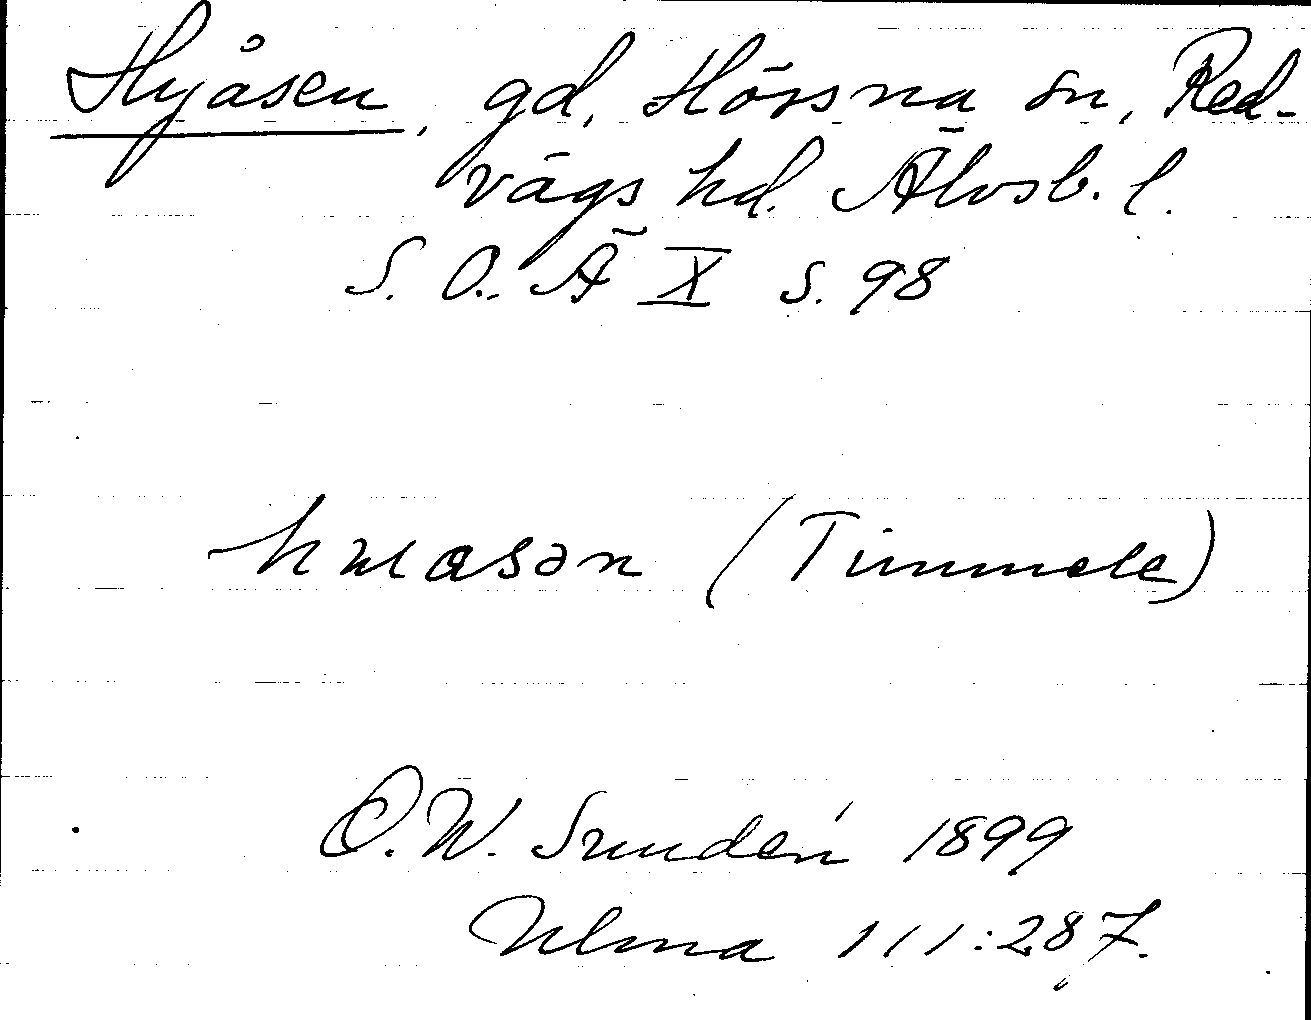 Hyåsen, gd, Hössna sn, Red-
vägs hd. Älvsb. l.
S. O. Ä X s. 98
hɯasən (Timmele)
O. W. Sundén 1899
Ulma 111:287.